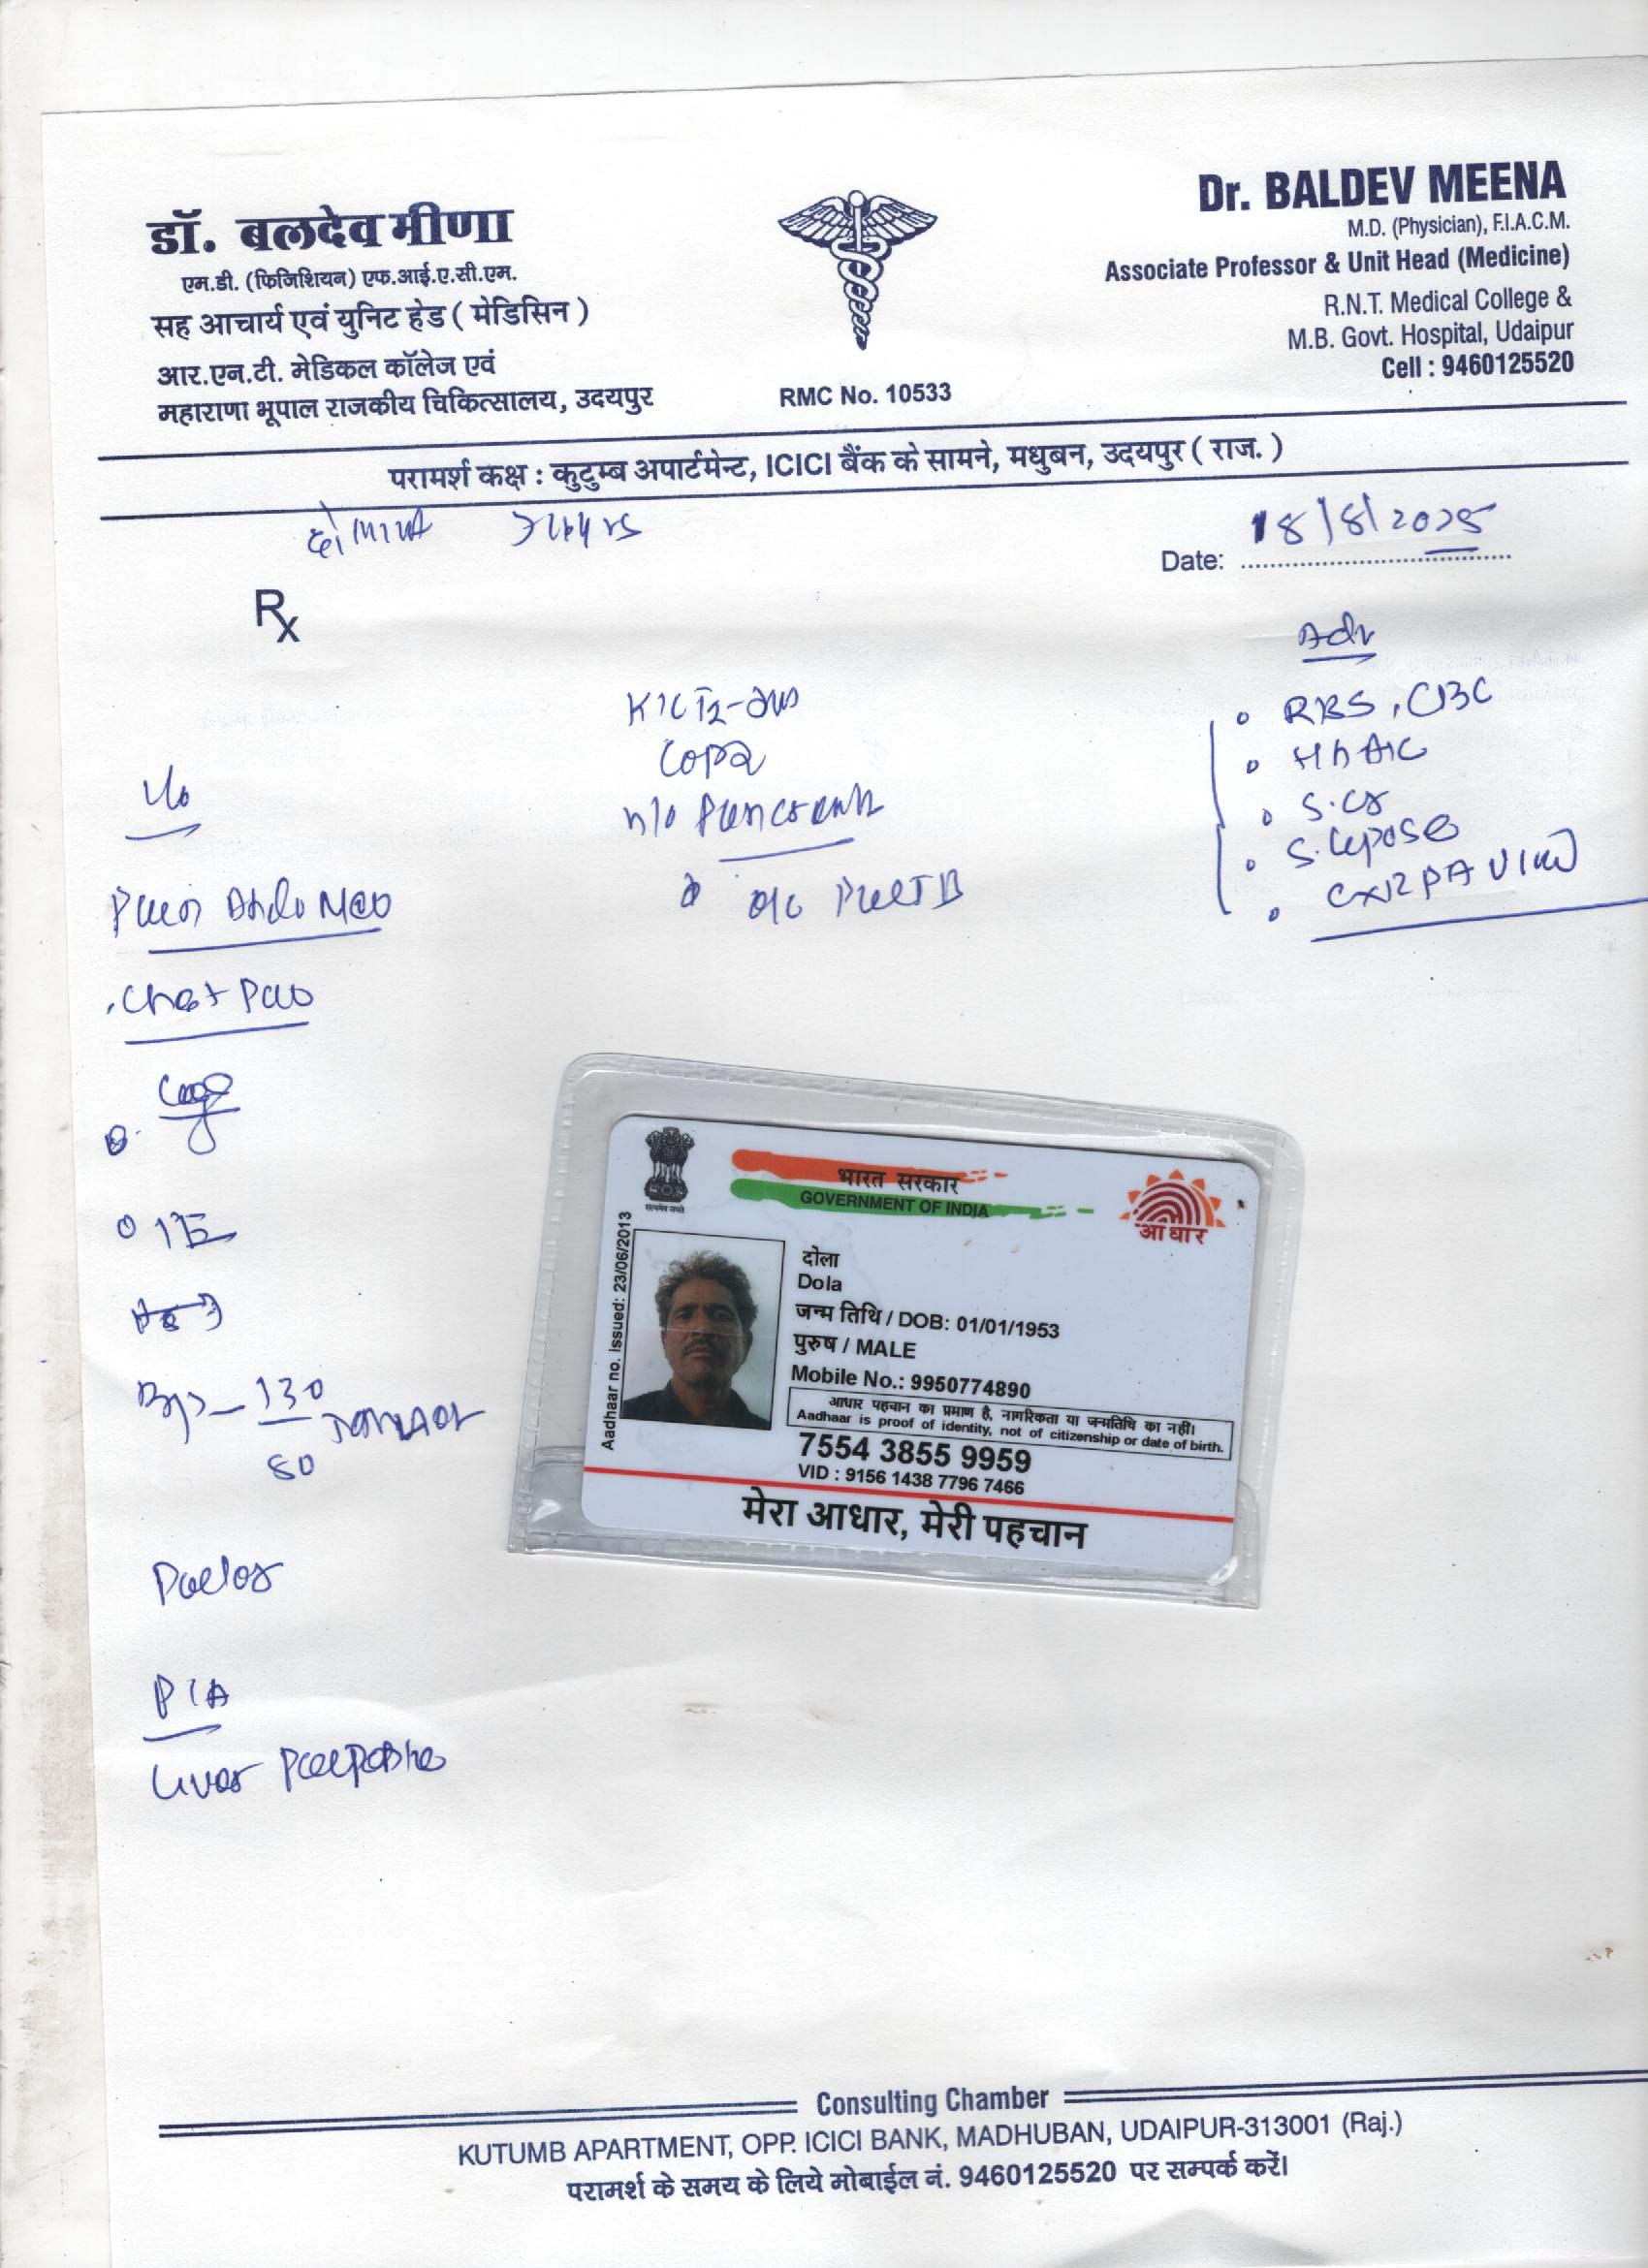 डॉ. बलदेव मीणा
एम.डी. (फिजिशियन) एफ.आई.ए.सी.एम.
सह आचार्य एवं युनिट हेड ( मेडिसिन )
आर.एन.टी. मेडिकल कॉलेज एवं
महाराणा भूपाल राजकीय चिकित्सालय, उदयपुर
RMC No. 10533
Dr. BALDEV MEENA
M.D. (Physician), F.I.A.C.M.
Associate Professor & Unit Head (Medicine)
R.N.T. Medical College &
M.B. Govt. Hospital, Udaipur
Cell : 9460125520
परामर्श कक्ष : कुटुम्ब अपार्टमेन्ट, ICICI बैंक के सामने, मधुबन, उदयपुर ( राज. )
Date: 18/8/2025
Rx
Adv
RBS, CBC
HbA1C
S. Cr
S. Lipase
CXR PA View
K/C T2-DM
COPD
h/o
o/c Pul TB
Pain Abdomen
Chest Pain
Cough
BP - 130
80
Pallor
P/A
Liver Palpable
भारत सरकार
GOVERNMENT OF INDIA
आधार
सत्यमेव जयते
Aadhaar no. issued: 23/06/2013
दोला
Dola
जन्म तिथि / DOB: 01/01/1953
पुरुष / MALE
Mobile No.: 9950774890
आधार पहचान का प्रमाण है, नागरिकता या जन्मतिथि का नहीं।
Aadhaar is proof of identity, not of citizenship or date of birth.
7554 3855 9959
VID : 9156 1438 7796 7466
मेरा आधार, मेरी पहचान
Consulting Chamber
KUTUMB APARTMENT, OPP. ICICI BANK, MADHUBAN, UDAIPUR-313001 (Raj.)
परामर्श के समय के लिये मोबाईल नं. 9460125520 पर सम्पर्क करें।